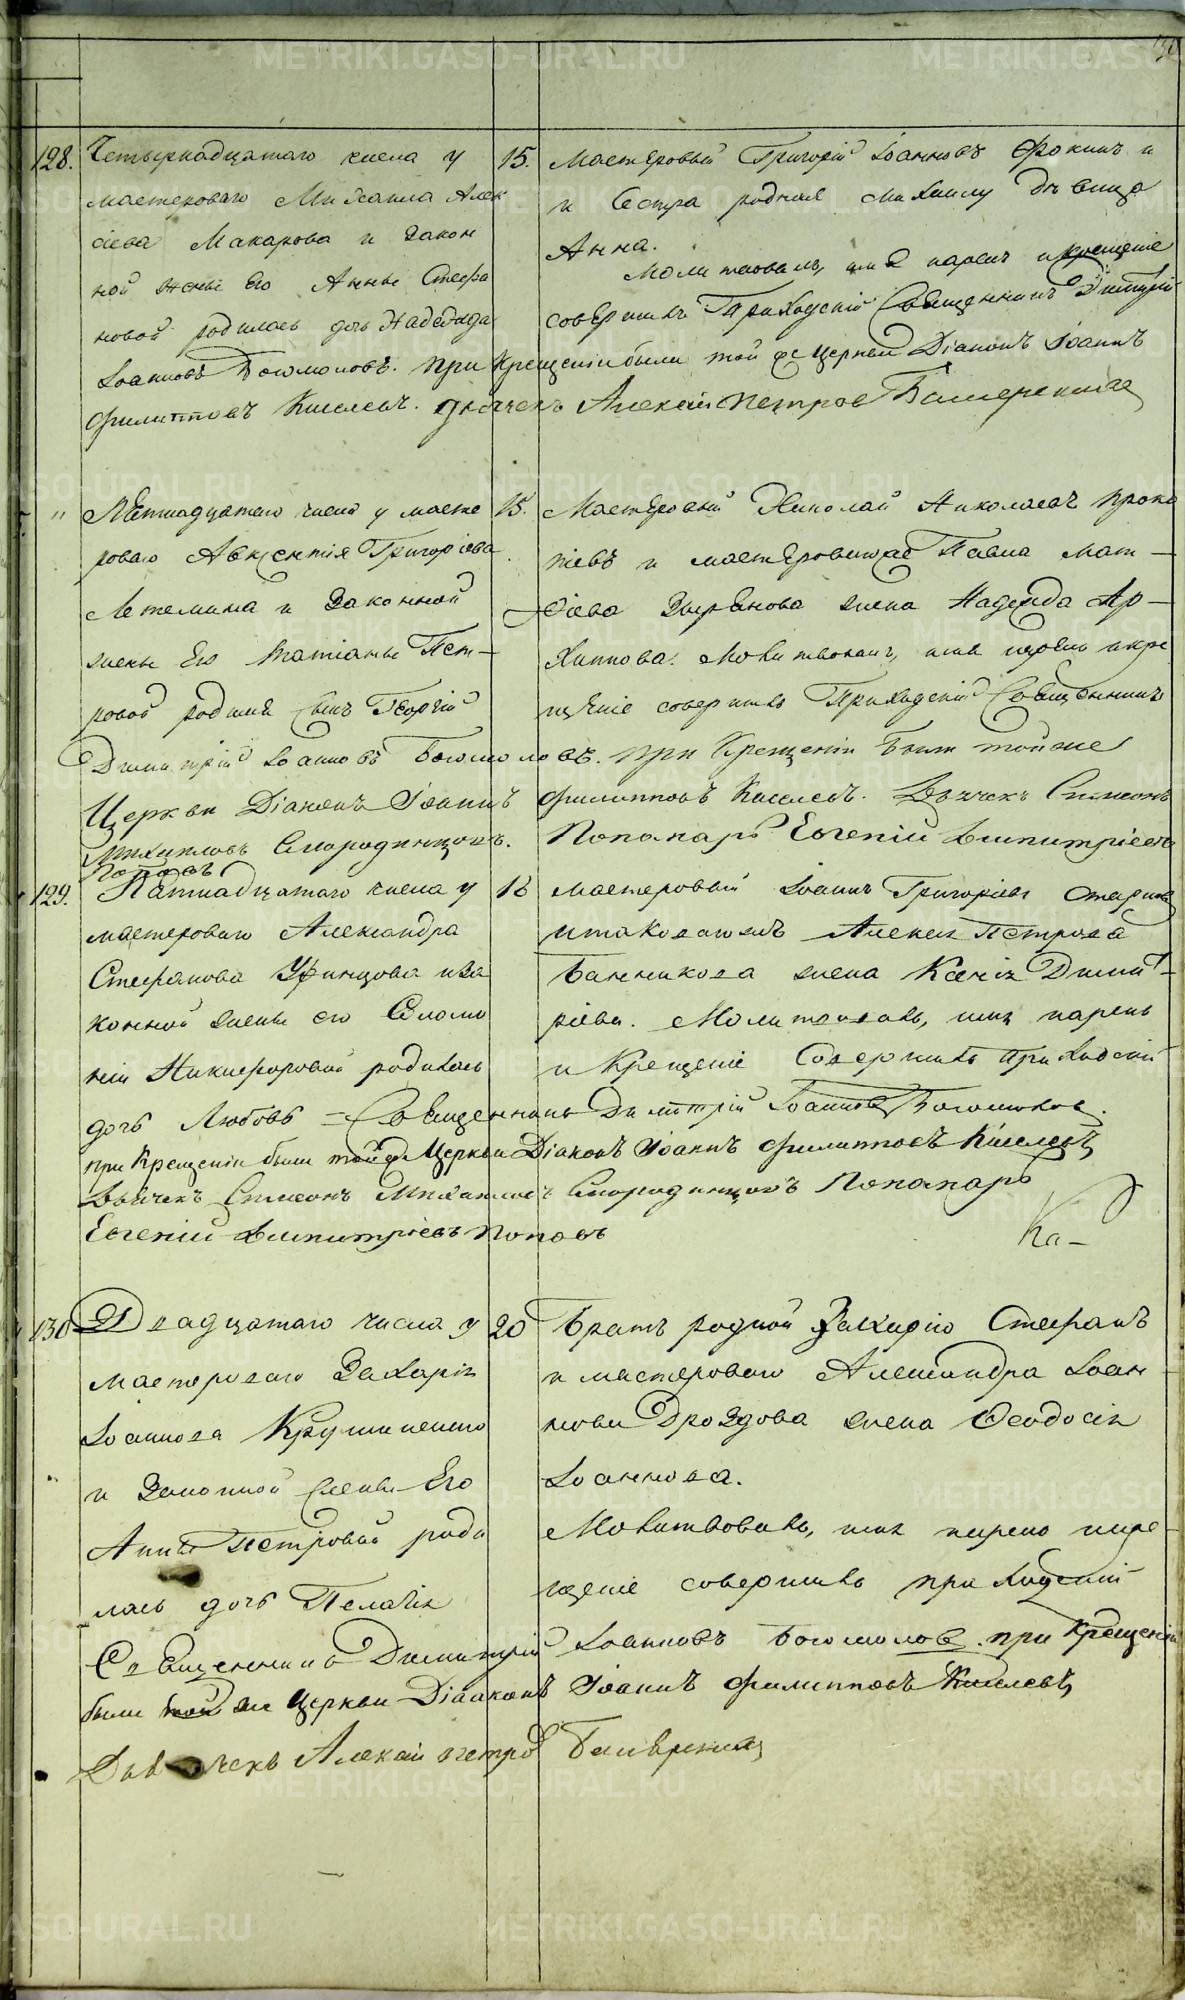 128. Четырнадцатаго числа у
мастероваго Михаила Алек
сіева Макарова и закон
ной жены его Анны Стефа
новой родилась дочь Надежда
15. Мастеровый Григорій Іоанновъ Фокинъ и
и Сестра родная Михаилу дѣвица
Анна.
Молитвовалъ, имя нарекъ и крещеніе
совершилъ Приходскій Священникъ Дмитрій
Іоанновъ Богомоловъ. при Крещеніи были той же Церкви Діаконъ Іоаннъ
Филипповъ Киселевъ. дьячекъ Алексій Петров
" Пятнадцатаго числа у масте
роваго Авксентія Григоріева
Летемина и Законной
жены Его Татіаны Пет-
ровой родился Сынъ Георгій
15. Мастеровый Николай Николаевъ Проко
піевъ и мастероваго Павла Мат-
ѳіева Зырянова жена Надежда Ар-
хиппова. Молитвовалъ, имя нарекъ и кре
щеніе совершилъ Приходскій Священникъ
Димитрій Іоанновъ Богомоловъ. при Крещеніи были тойже
Церкви Діаконъ Іоаннъ Филипповъ Киселевъ. Дьячекъ Симеонъ
Михаиловъ Смородинцовъ. Пономарь Евгеній Димитріевъ
Поповъ
129. Пятнадцатаго числа у
мастероваго Александра
Стефанова Уфинцова и за
конной жены его Соломо
ніи Никифоровой родилась
дочь Любовь
16 мастеровый Іоаннъ Григоріевъ
Алексея Петрова
Банникова жена Ксенія Димит-
ріева. Молитвовалъ, имя нарекъ
и Крещеніе Совершилъ приходскій
Священникъ Димитрій Іоанновъ Богомоловъ.
при Крещеніи были той же Церкви Діаконъ Іоаннъ Филипповъ Киселевъ
Дьячекъ Симеонъ Михаиловъ Смородинцовъ Пономарь
Евгеній Димитріевъ Поповъ
Ка-
130 Двадцатаго числа у
мастероваго Захарія
Іоаннова
и Законной жены Его
Анны Петровой роди
лась дочь Пелагія
20 Братъ родной Захарію Стефанъ
и мастероваго Александра Іоан
нова Дроздова жена Ѳеодосія
Іоаннова.
Молитвовалъ, имя нарекъ и кре-
щеніе совершилъ приходскій
Священникъ Димитрій Іоанновъ Богомолов. при Крещеніи
были той же Церкви Діаконъ Іоаннъ Филипповъ Киселевъ
Дьячекъ Алексій Петров
METRIKI.GASO-URAL.RU